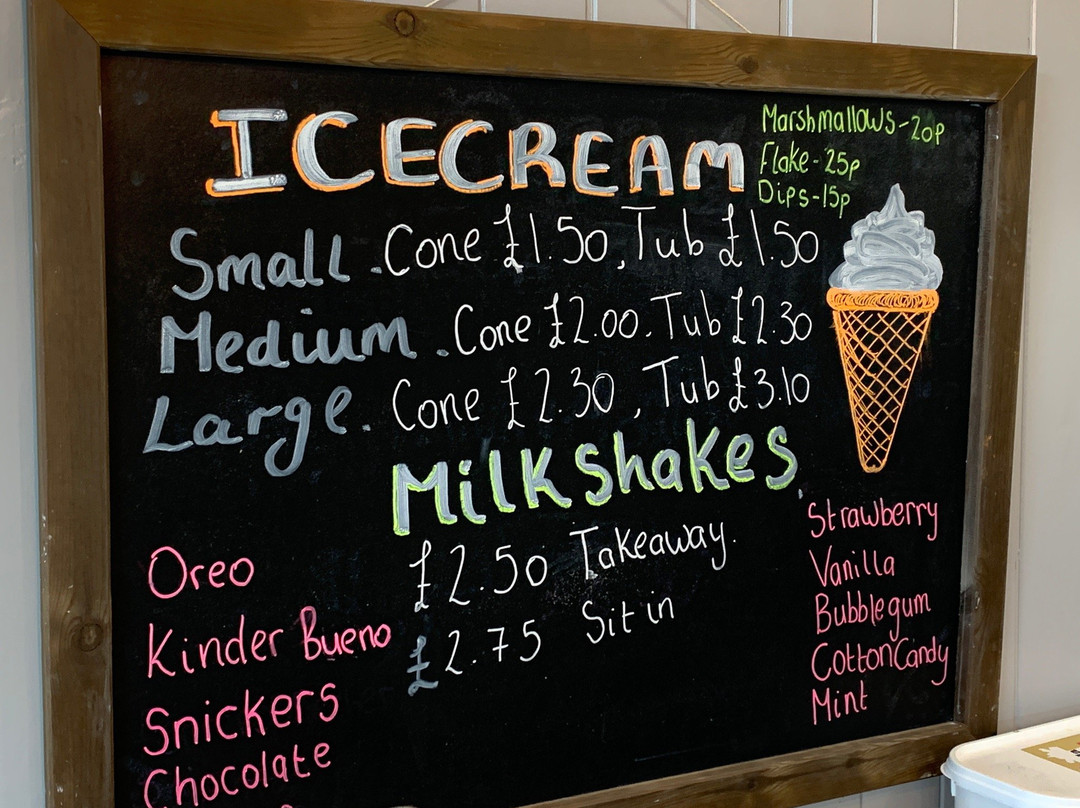 ICECREAM
Marshmallows-20p
Flake-25p
Dips-15p
Small. Cone £1.50, Tub £1.50
Medium. Cone £2.00. Tub £2.30
Large. Cone £2.30, Tub £3.10
Milkshakes
£2.50 Takeaway.
£2.75 Sit in
Oreo
Kinder Bueno
Snickers
Chocolate
Strawberry
Vanilla
Bubblegum
Cotton Candy
Mint